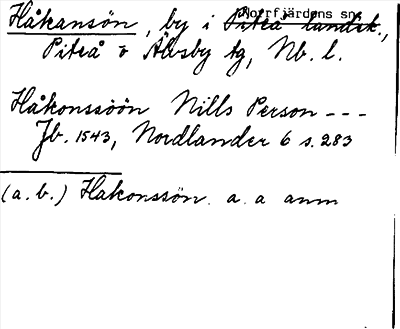 Håkansön, by i Piteå landsk., Norrfjärdens sn
Piteå o Älvsby tg, Nb. l.
Håkonssöön Nills Person ---
Jb. 1543, Nordlander 6 s. 283
(a. b.) Hakonssön. a. a anm